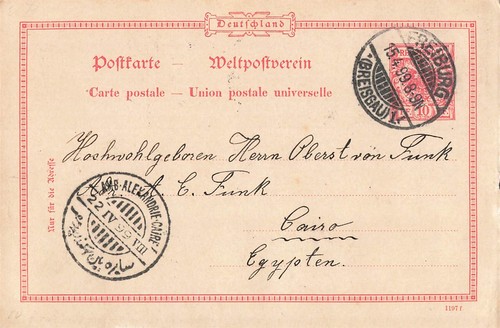 Deutschland
Postkarte — Weltpostverein
Carte postale — Union postale universelle
FREIBURG
15.4.99.8-9N.
*(BREISGAU)1.*
10
Nur für die Adresse
Hochwohlgeboren Herrn Oberst von Funk
A. C. Funk
Cairo
Egypten.
AMB-ALEXANDRIE-CAIRE
22 IV 99
1197 f